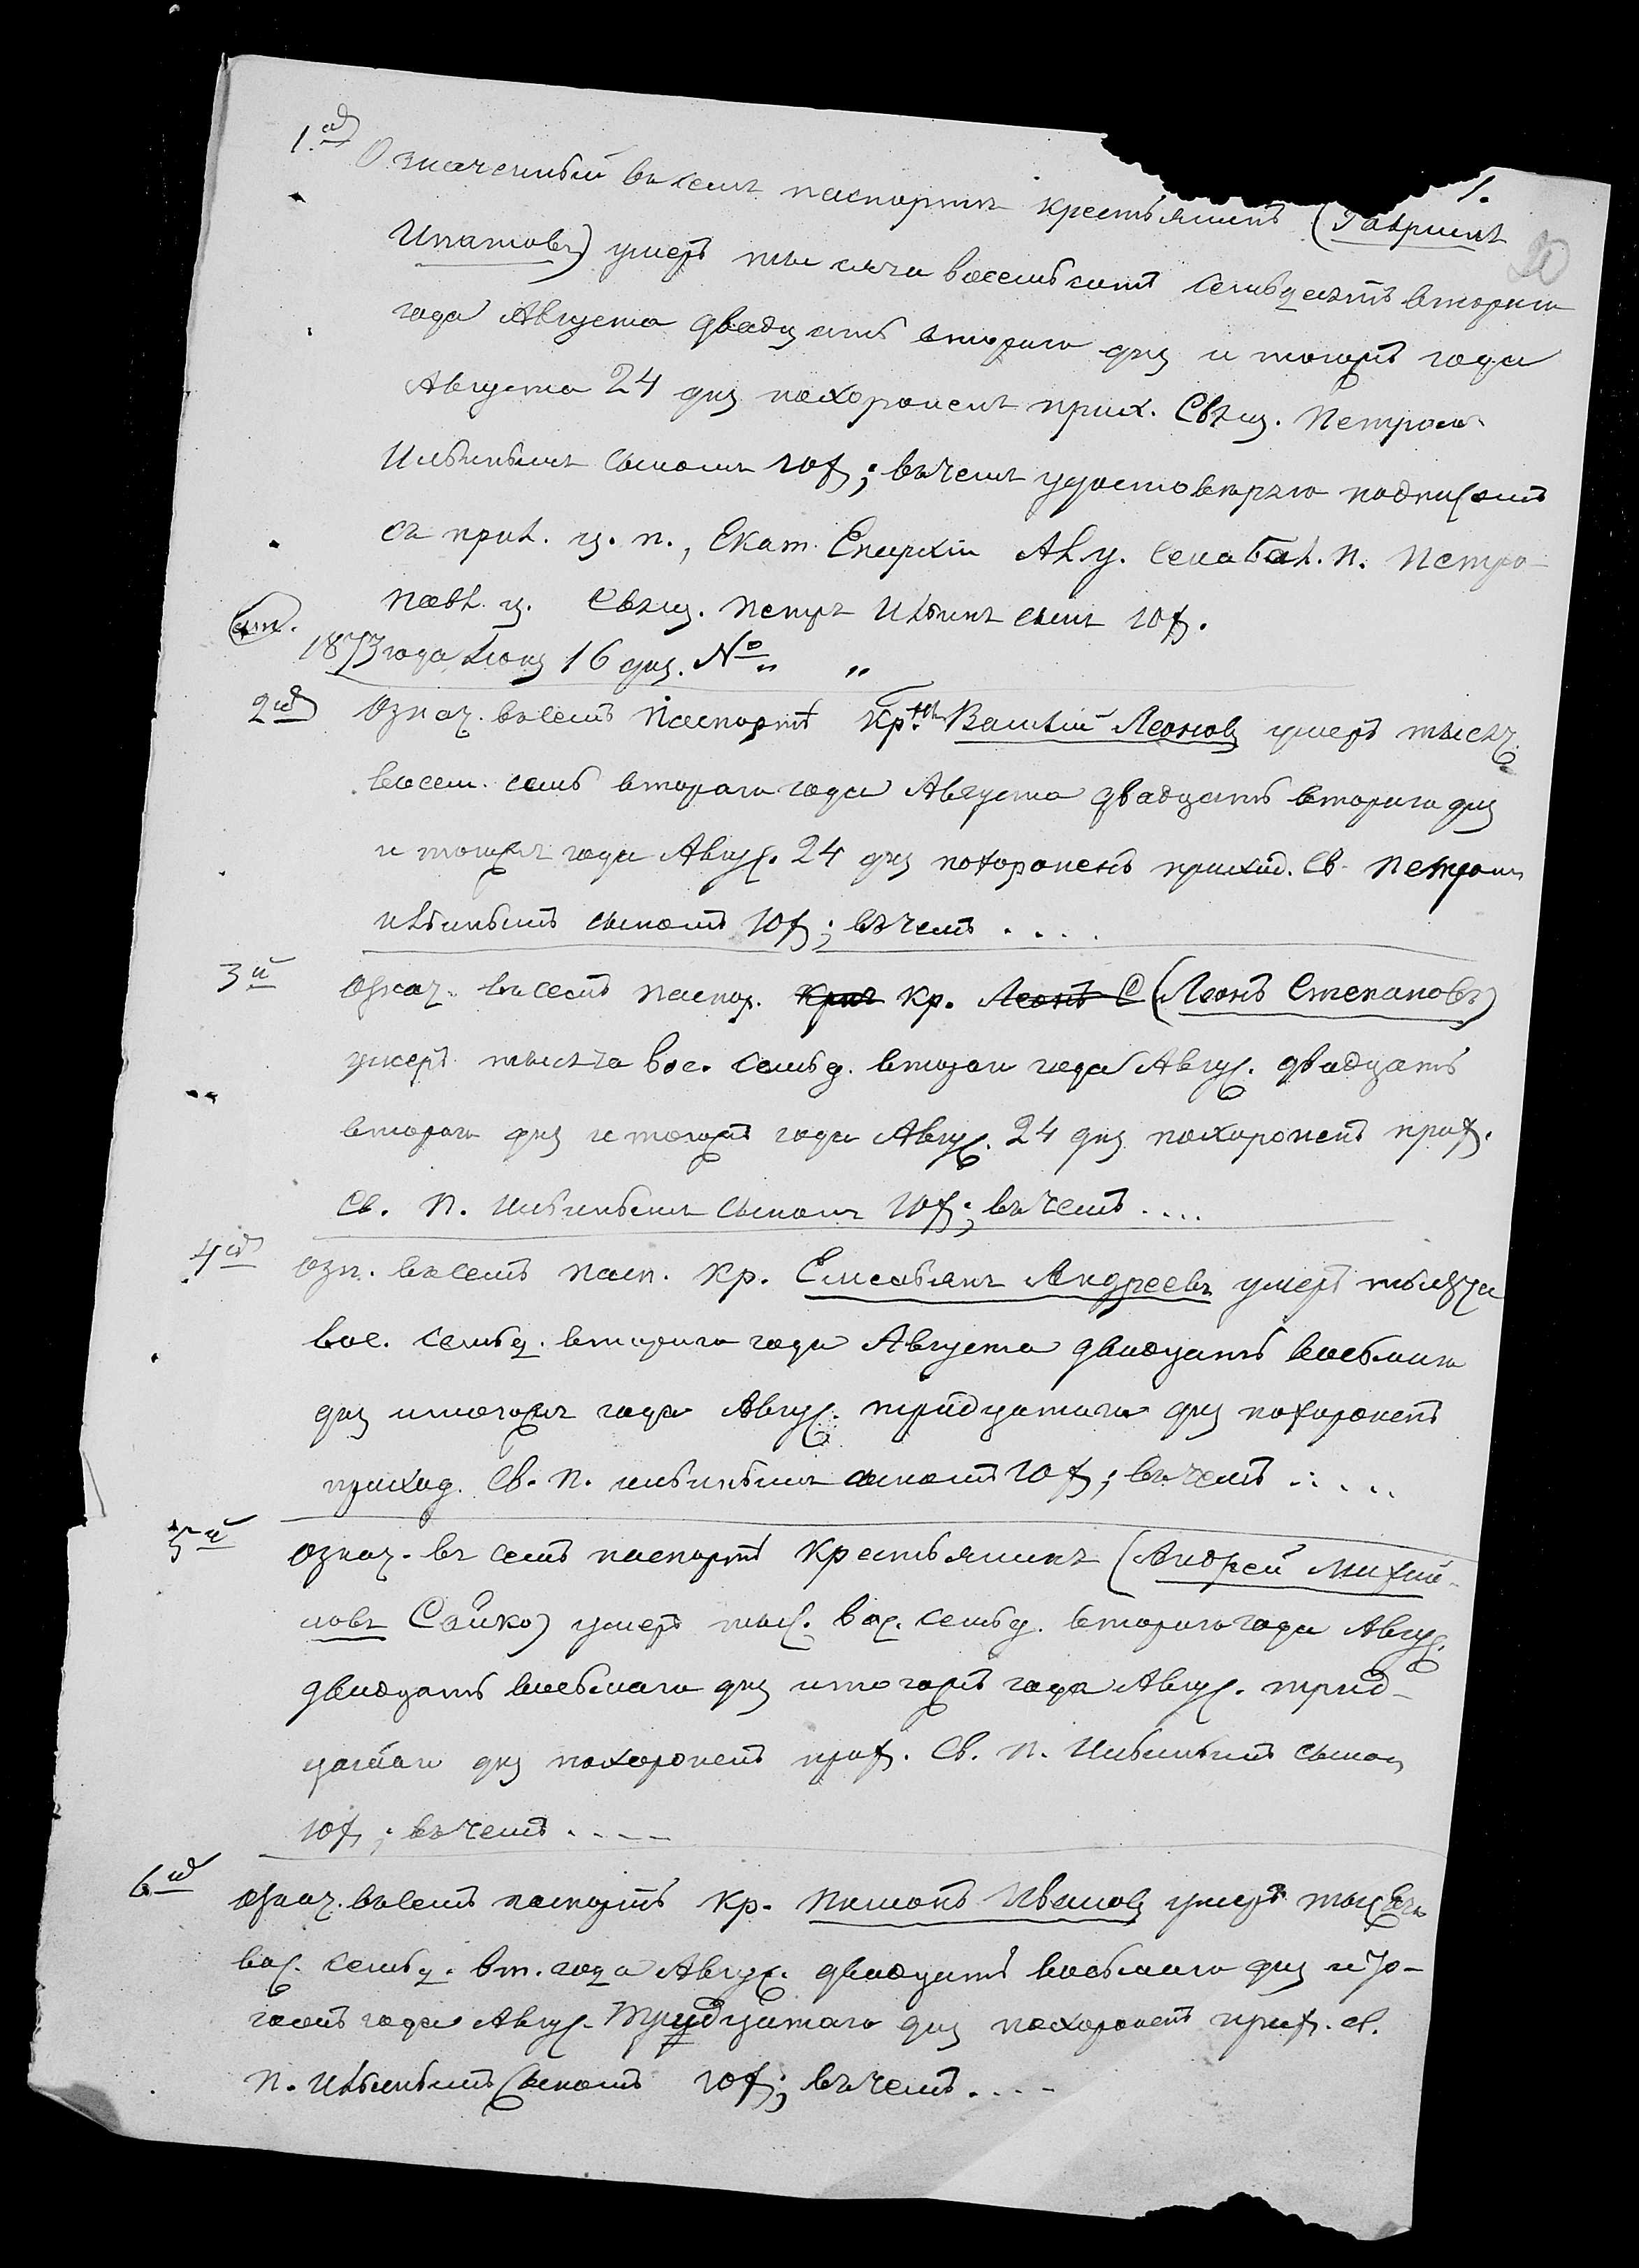 1.
20
1.й Означенный въ семъ паспортѣ крестьянинъ (Гавріилъ
Ипатовъ) умеръ тысяча восемьсотъ семьдесятъ втораго
года Августа двадцать втораго дня и тогожъ года
Августа 24 дня похороненъ прих. Свящ. Петромъ
Ильинымъ сыномъ Юф; въ чемъ удостовѣряю подписомъ
съ прил. ц. п., Екат. Епархіи Ал. у. села Бал. п. Петро-
павл. ц. Свящ. Петръ Ильинъ сынъ Юф.
1873 года Іюня 16 дня. № „ „
2й Означ. въ семъ паспортѣ кр-нъ Василій Леоновъ умеръ тысяч.
восем. семь втораго года Августа двадцать втораго дня
и тогожъ года Авгус. 24 дня похороненъ приход. Св. Петромъ
Ильинымъ сыномъ Юф; въ чемъ . . . .
3й Означ. въ семъ паспор. кр. Леонъ С (Леонъ Степановъ)
умеръ тысяча вос. семьд. втораго года Авгус. двадцать
втораго дня и тогожъ года Авгус. 24 дня похороненъ прих.
Св. П. Ильинымъ сыномъ Юф; въ чемъ . . . .
4й Озн. въ семъ пасп. кр. Емельянъ Андреевъ умеръ тысяча
вос. семьд. втораго года Августа двадцать восьмаго
дня и тогожъ года Авгус. тридцатаго дня похороненъ
приход. Св. П. Ильинымъ сыномъ Юф; въ чемъ . . . . .
5й Означ. въ семъ паспортѣ крестьянинъ (Андрей Михай-
ловъ Сайко) умеръ тыс. вос. семьд. втораго года Авгус.
двадцать восьмаго дня и тогожъ года Авгус. трид-
цатаго дня похороненъ прих. Св. П. Ильинымъ сыном
Юф; въ чемъ . . . .
6й Означ. въ семъ паспортѣ кр. Пимонъ Ивановъ умеръ тысяча
вос. семьд. вт. года Авгус. двадцать восьмаго дня и то-
гожъ года Авгус. тридцатаго дня похороненъ прих. св.
П. Ильинымъ сыномъ Юф; въ чемъ . . . .